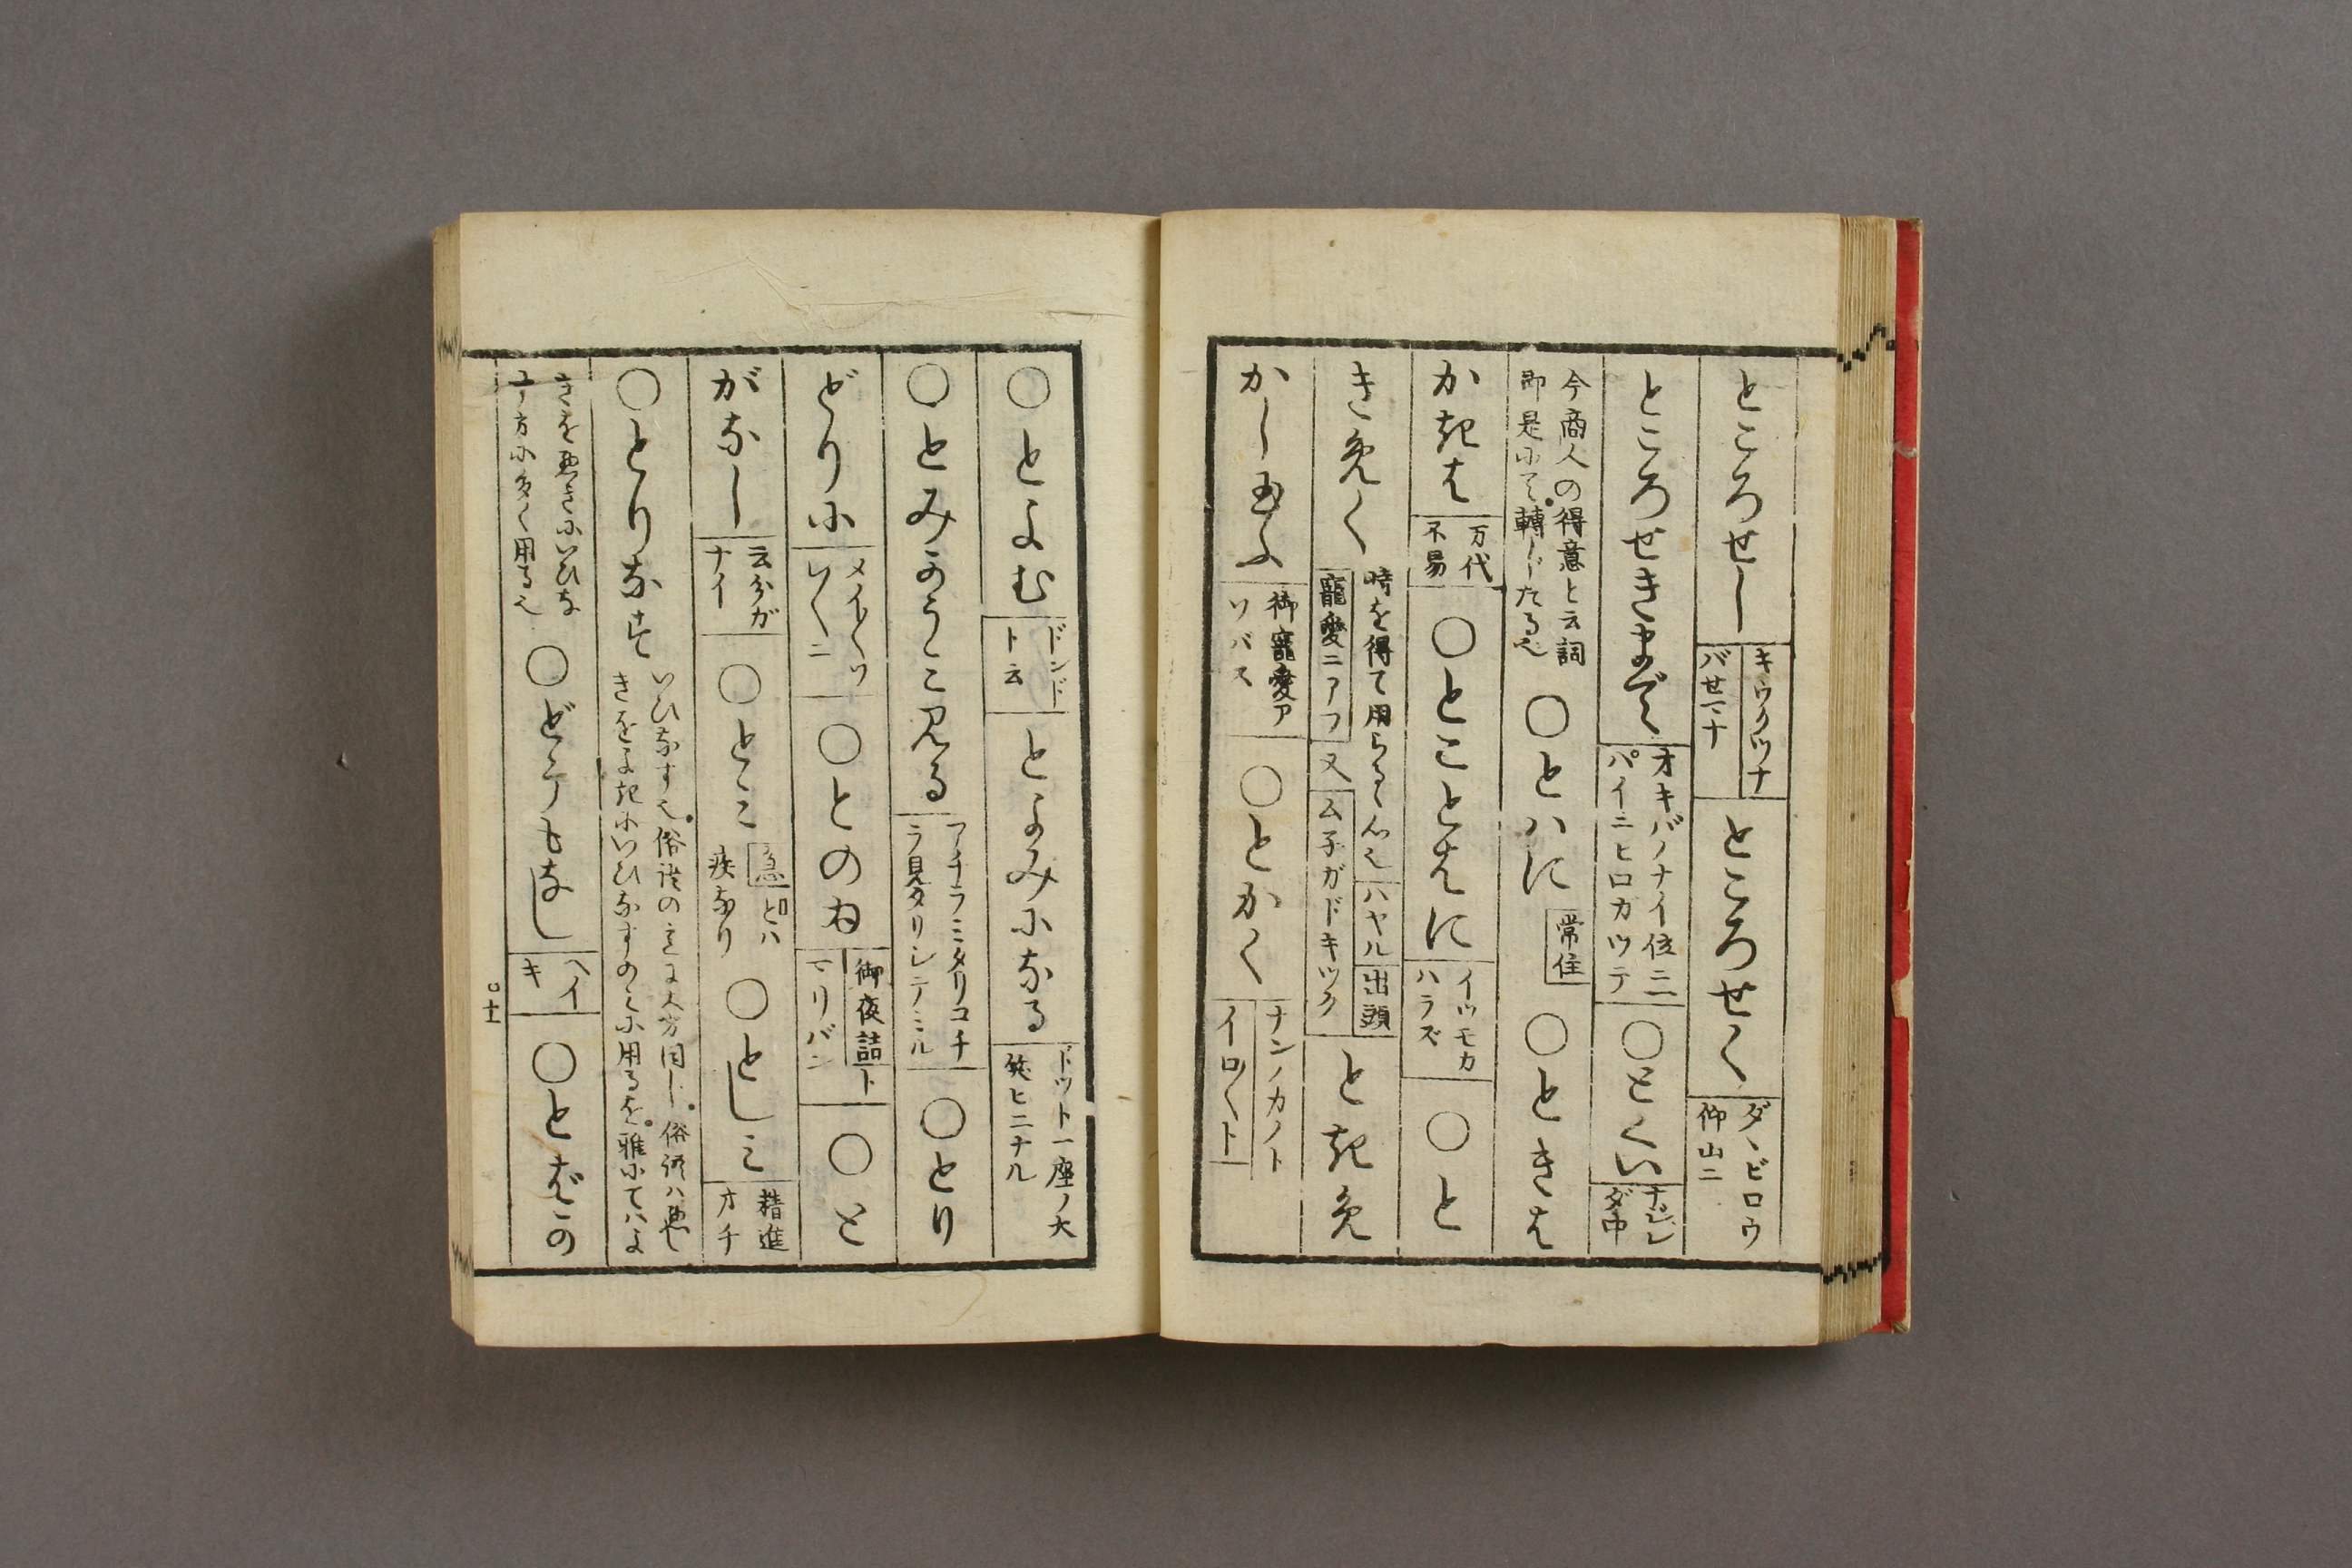 ところせし キウクツナ バせマナ ところせく ダヽビロウ 仰山ニ
ところせきまで オキバノナイ位ニ パイニヒロカツテ ○とくい ナジレ ダ中
今商人の得意と云詞 即是にて。轉じたる也 ○とハに 常住 ○ときは
かきは 万代 不易 ○とことはに イツモカ ハラズ ○と
きめく 時を得て用らるゝ心也 ハヤル 出頭 寵愛ニアフ 又 ム子ガドキツク ときめ
かし給ふ 御寵愛ア ソバス ○とかく ナンノカノト イロ〱ト
○とよむ ドンド ト云 とよみになる ドツト一座ノ大 笑ヒニナル
○とみかうみ見る アチラミタリコチ ラ見タリシテミル ○とり
どりに メイ〱ソ レ〱ニ ○とのゐ 御夜詰 ト マリバン ○と
がなし 云分ガ ナイ ○とみ 急 とハ 疾なり ○としみ 精進 オチ
○とりなす いひなす也。俗語の意に大方同じ。俗語ハ悪し きをよきにいひなすのミに用るを。雅にてハよ
きを悪きにいひな す方に多く用る也 ○どうもなし ヘイ キ ○とばかの
ロ十